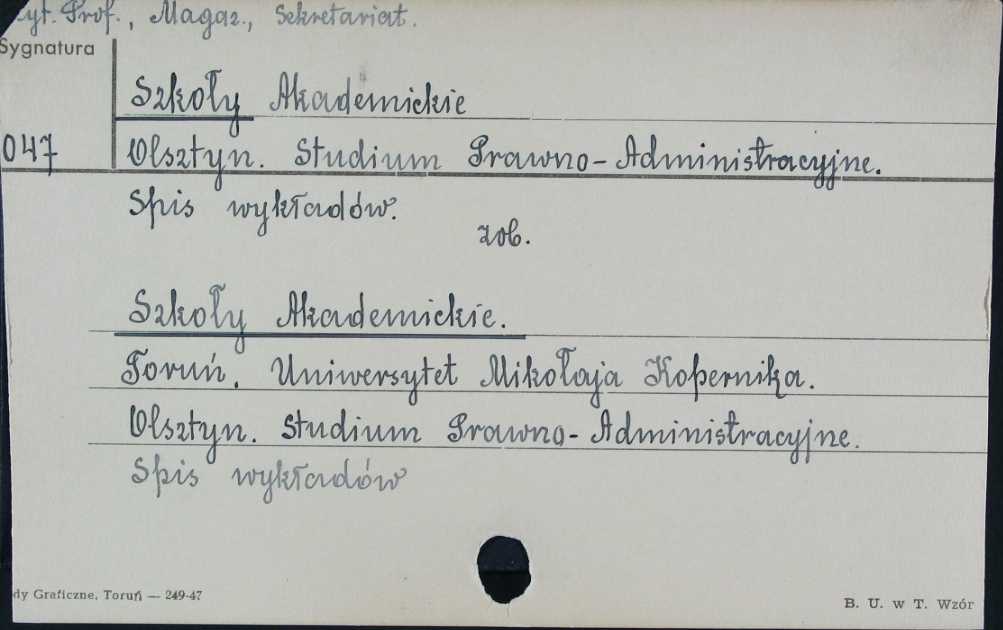 yt. Prof., Magaz., Sekretariat.
Sygnatura
Szkoły Akademickie
047
Olsztyn. Studium Prawno-Administracyjne.
Spis wykładów.
zob.
Szkoły Akademickie.
Toruń. Uniwersytet Mikołaja Kopernika.
Olsztyn. Studium Prawno-Administracyjne.
Spis wykładów
dy Graficzne, Toruń — 249-47
B. U. w T. Wzór